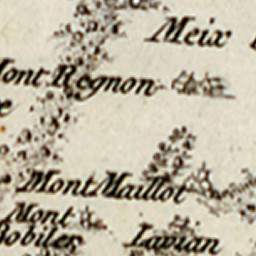 Meix
Mont Regnon
Mont Maillot
Mont
Bobiles
Lavian